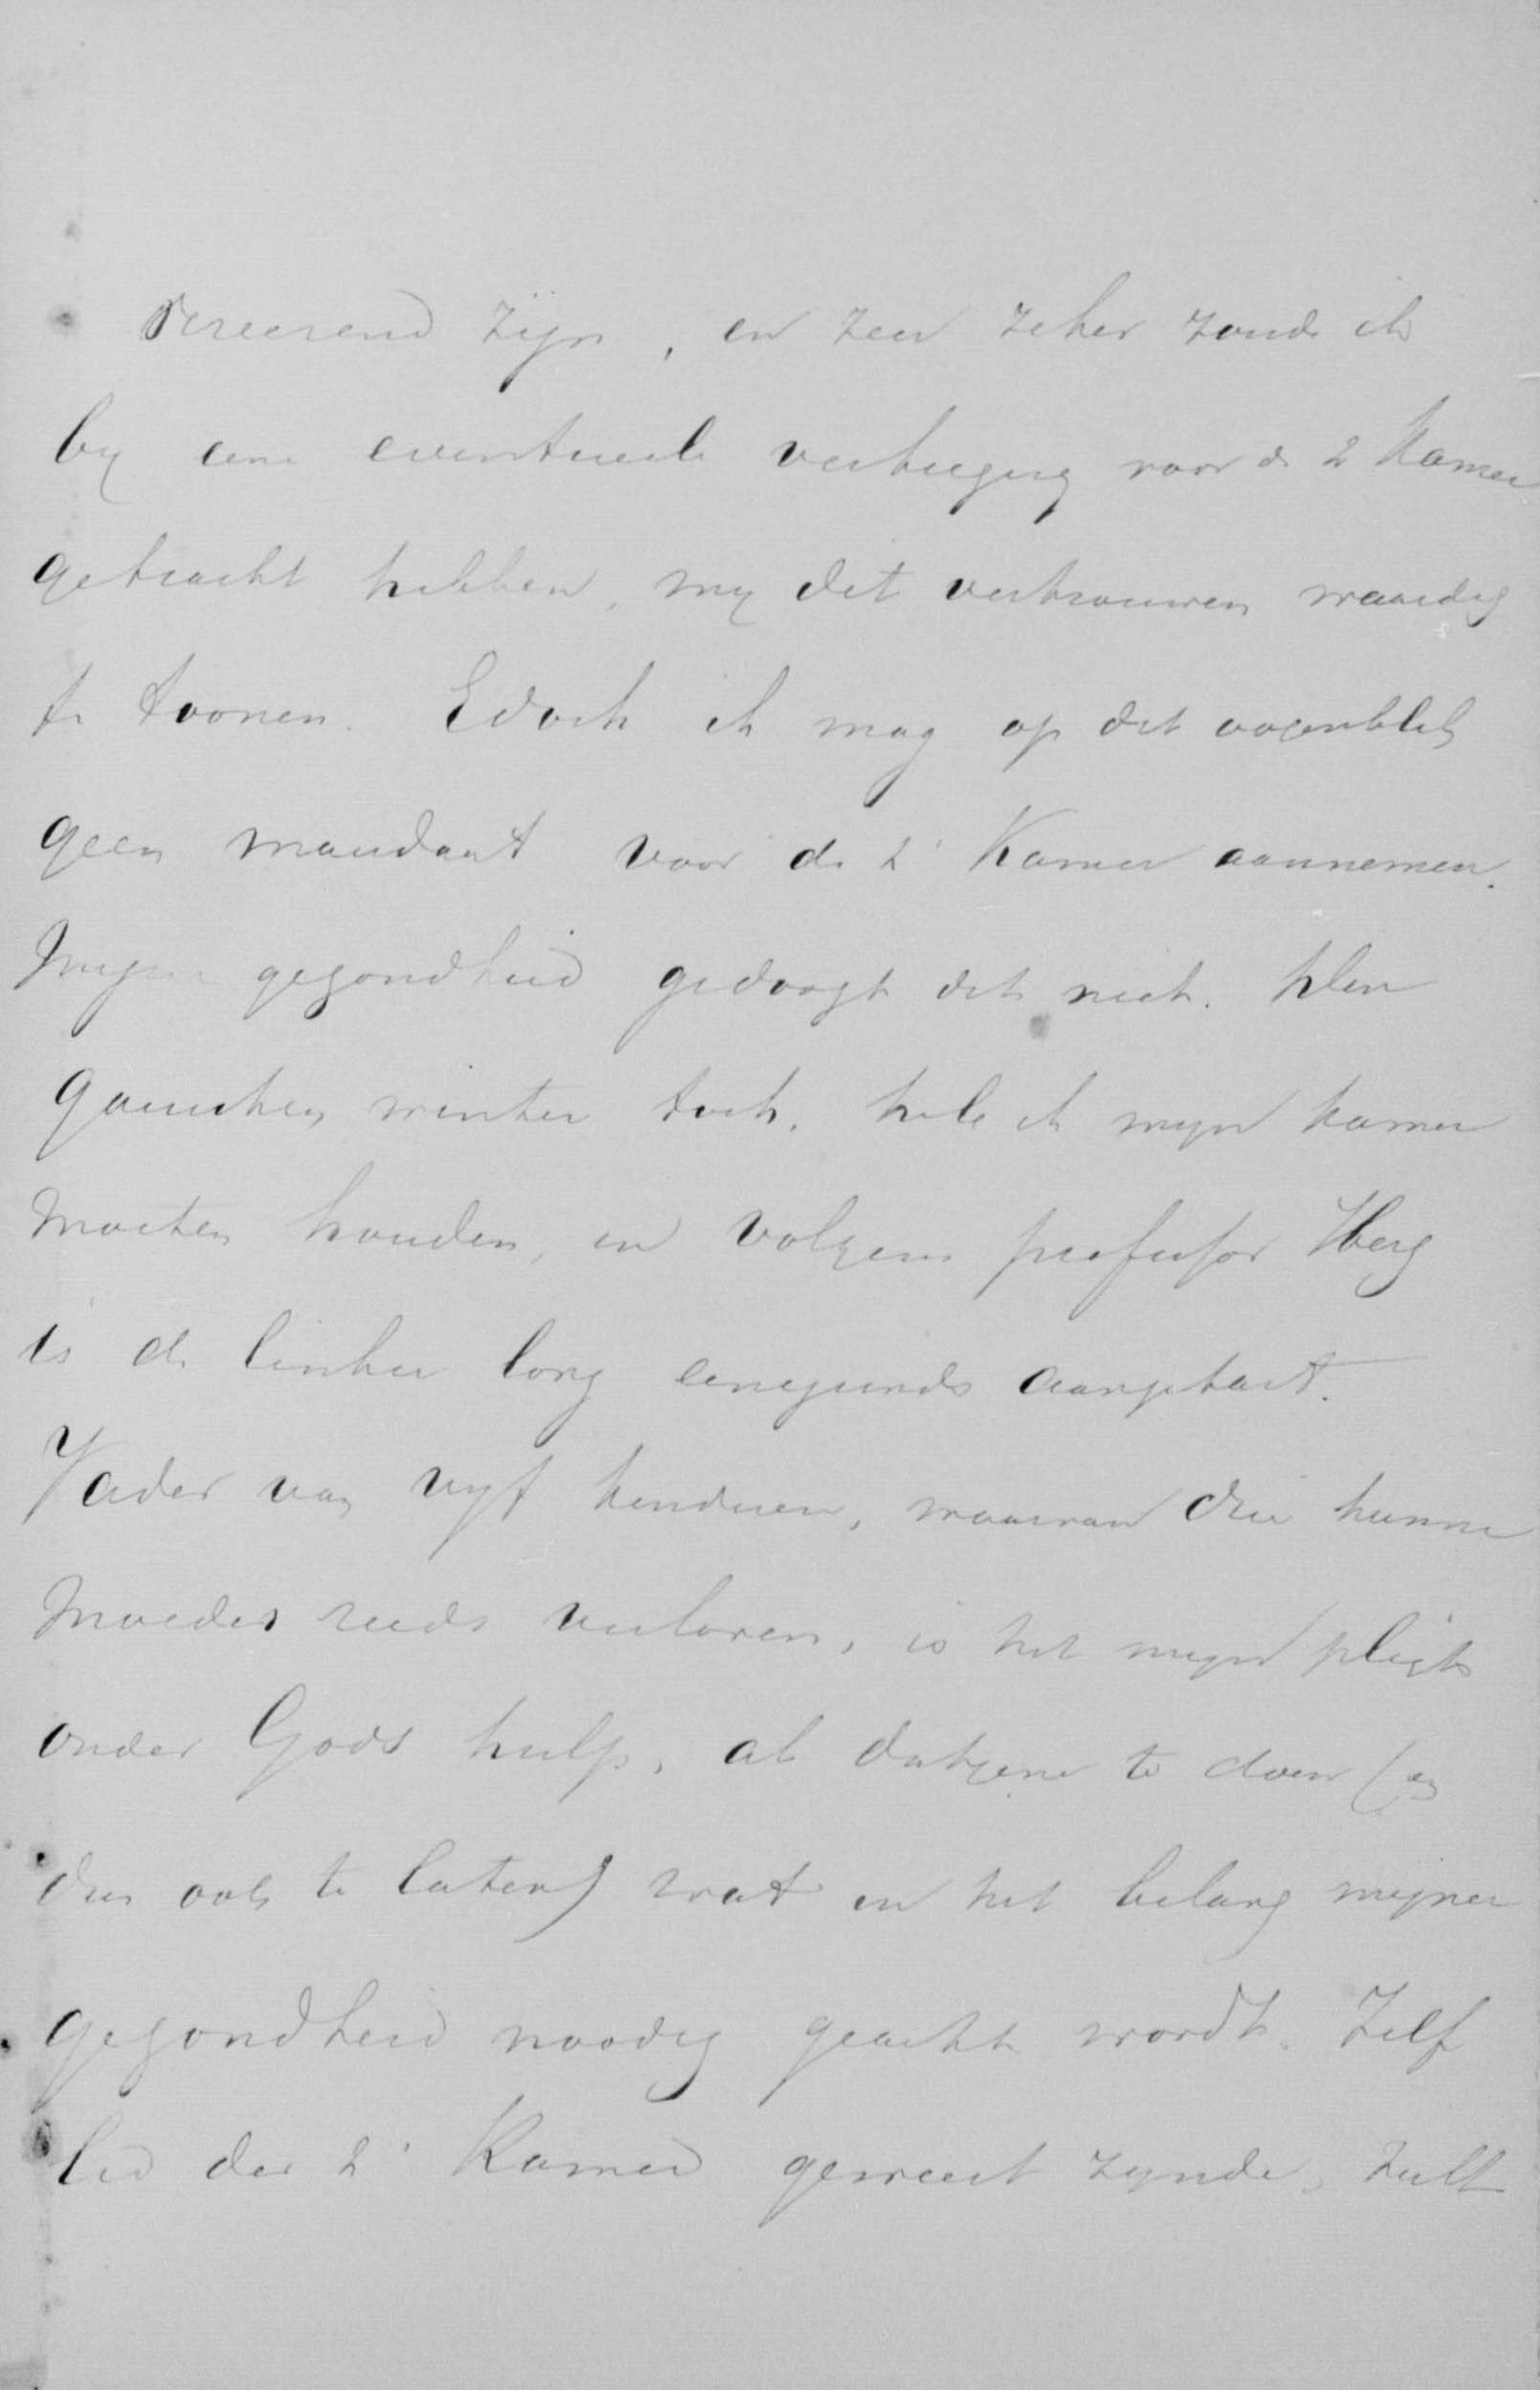 vereerend zijn, en zeer zeker zoude ik
by eene eventueele verkiezing voor de 2 Kamer
getracht hebben, my dit vertrouwen waardig
te toonen. Edoch ik mag op dit oogenblik
geen mandaat voor de 2e Kamer aannemen.
Mijne gezondheid gedoogt dit niet. Den
gauschen winter toch, heb ik myn kamer
moeten houden, en volgens professor
is de linker long eenigzinds aangetast.
Vader van vyf kinderen, waarvan drie hunne
moeder reeds verloren, is het myn pligt
onder Gods hulp, al datgene te doen (en
dus ook te laten) wat in het belang mijner
gezondheid noodig geacht wordt. Zelf
lid der 2e Kamer geweest zynde, zult